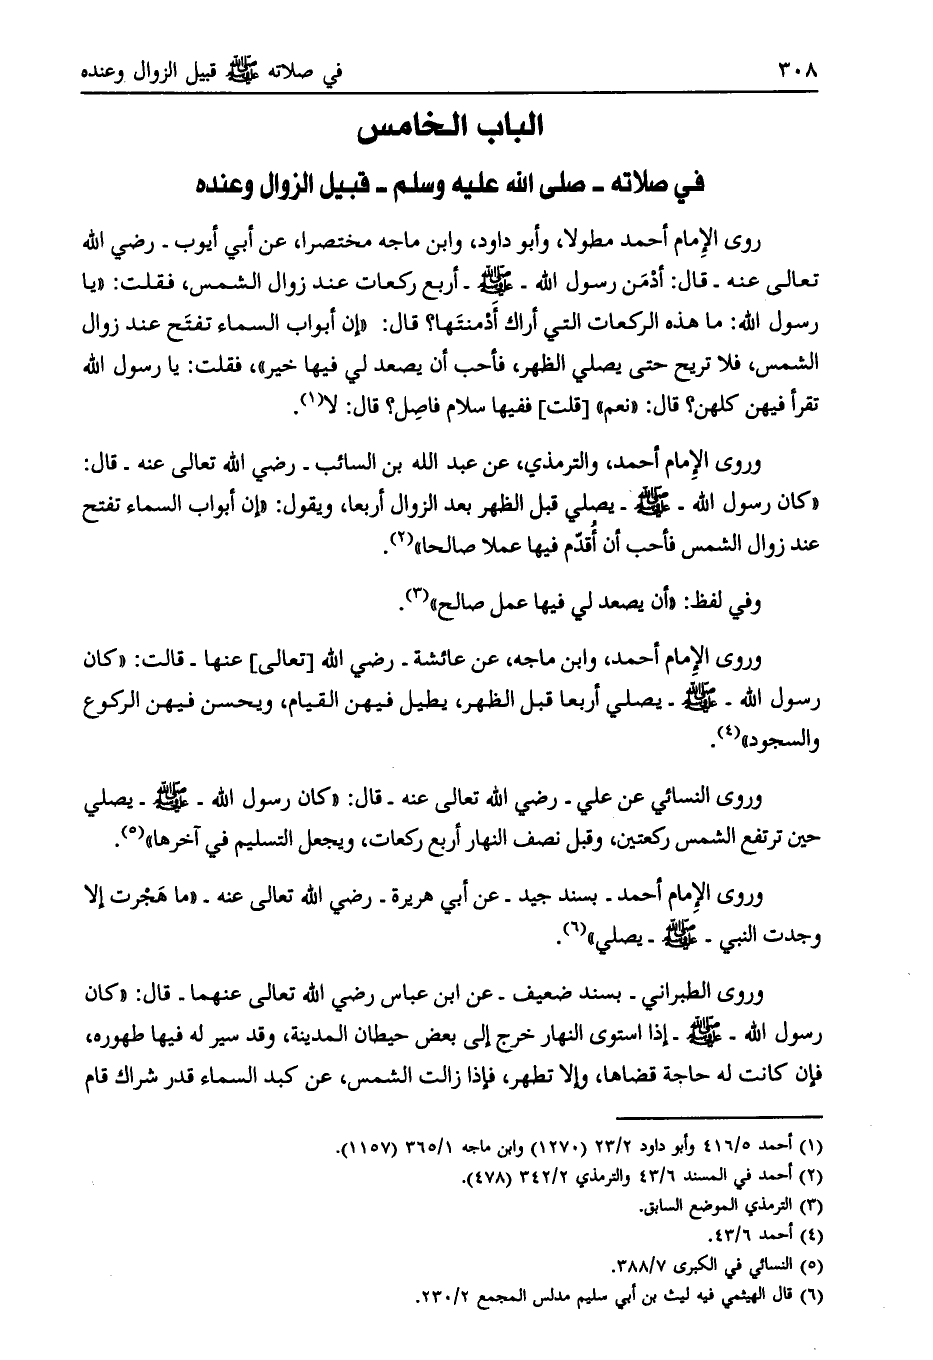 ٣٠٨ في صلاته ﷺ قبيل الزوال وعنده
الباب الخامس
في صلاته ـ صلى الله عليه وسلم ـ قبيل الزوال وعنده
روى الإِمام أحمد مطولا، وأبو داود، وابن ماجه مختصرا، عن أبي أيوب ـ رضي الله
تعالى عنه ـ قال: أدْمَن رسول الله ـ ﷺ ـ أربع ركعات عند زوال الشمس، فقلت: «يا
رسول الله: ما هذه الركعات التي أراك أَدْمنتَها؟ قال: «إن أبواب السماء تفتَح عند زوال
الشمس، فلا تريح حتى يصلي الظهر، فأحب أن يصعد لي فيها خير»، فقلت: يا رسول الله
تقرأ فيهن كلهن؟ قال: «نعم» [قلت] ففيها سلام فاصِل؟ قال: لا(١).
وروى الإِمام أحمد، والترمذي، عن عبد الله بن السائب ـ رضي الله تعالى عنه ـ قال:
«كان رسول الله ـ ﷺ ـ يصلي قبل الظهر بعد الزوال أربعا، ويقول: «إن أبواب السماء تفتح
عند زوال الشمس فأحب أن أُقدّم فيها عملا صالحا»(٢).
وفي لفظ: «أن يصعد لي فيها عمل صالح»(٣).
وروى الإِمام أحمد، وابن ماجه، عن عائشة ـ رضي الله [تعالى] عنها ـ قالت: «كان
رسول الله ـ ﷺ ـ يصلي أربعا قبل الظهر، يطيل فيهن القيام، ويحسن فيهن الركوع
والسجود»(٤).
وروى النسائي عن علي ـ رضي الله تعالى عنه ـ قال: «كان رسول الله ـ ﷺ ـ يصلي
حين ترتفع الشمس ركعتين، وقبل نصف النهار أربع ركعات، ويجعل التسليم في آخرها»(٥).
وروى الإِمام أحمد ـ بسند جيد ـ عن أبي هريرة ـ رضي الله تعالى عنه ـ «ما هَجْرت إلا
وجدت النبي ـ ﷺ ـ يصلي»(٦).
وروى الطبراني ـ بسند ضعيف ـ عن ابن عباس رضي الله تعالى عنهما ـ قال: «كان
رسول الله ـ ﷺ ـ إذا استوى النهار خرج إلى بعض حيطان المدينة، وقد سير له فيها طهوره،
فإن كانت له حاجة قضاها، وإلا تطهر، فإذا زالت الشمس، عن كبد السماء قدر شراك قام
(١) أحمد ٤١٦/٥ وأبو داود ٢٣/٢ (١٢٧٠) وابن ماجه ٣٦٥/١ (١١٥٧).
(٢) أحمد في المسند ٤٣/٦ والترمذي ٣٤٢/٢ (٤٧٨).
(٣) الترمذي الموضع السابق.
(٤) أحمد ٤٣/٦.
(٥) النسائي في الكبرى ٣٨٨/٧.
(٦) قال الهيثمي فيه ليث بن أبي سليم مدلس المجمع ٢٣٠/٢.